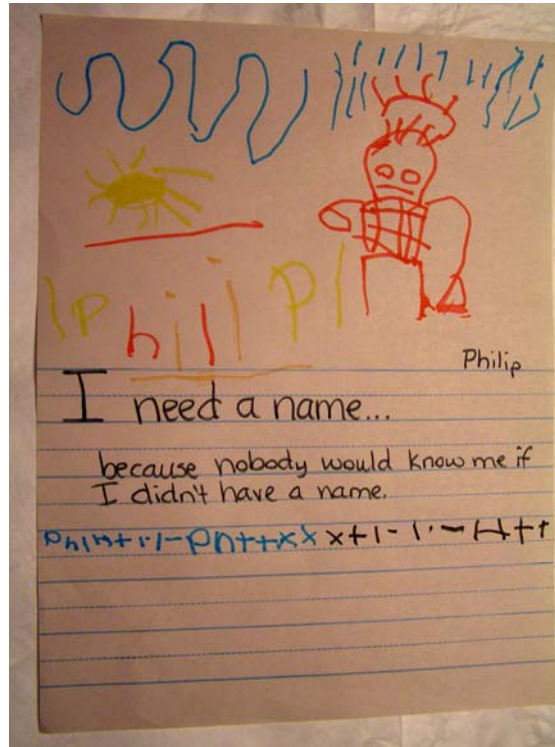 philip
Philip
I need a name...
because nobody would know me if
I didn't have a name.